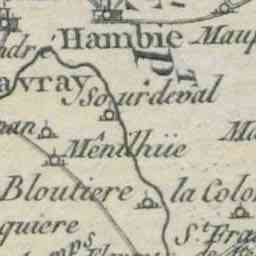 ndré Hambie Maup
avray Sourdeval
nan
Ménilhüe Ma
Bloutiere la Colo
quiere S.t Fra